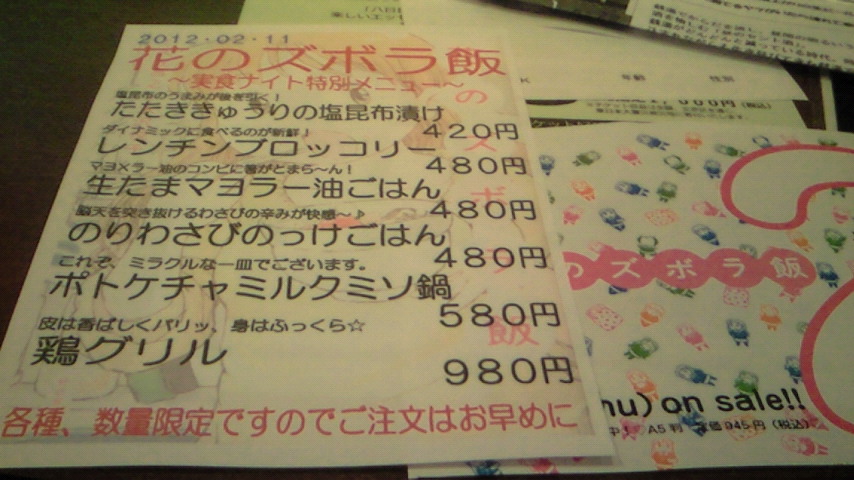 2012・02・11
花のズボラ飯
～実食ナイト特別メニュー～
塩昆布のうまみが後を引く!
たたききゅうりの塩昆布漬け
420円
ダイナミックに食べるのが新鮮!
レンチンブロッコリー
480円
マヨ×ラー油のコンビに箸がとまら～ん!
生たまマヨラー油ごはん
480円
脳天を突き抜けるわさびの辛みが快感～♪
のりわさびのっけごはん
480円
これぞ、ミラクルな一皿でございます。
ポトケチャミルクミソ鍋
580円
皮は香ばしくパリッ、身はふっくら☆
鶏グリル
980円
各種、数量限定ですのでご注文はお早めに
のズボラ飯
のズボラ飯
nu) on sale!!
A5判 定価945円(税込)
年齢 性別